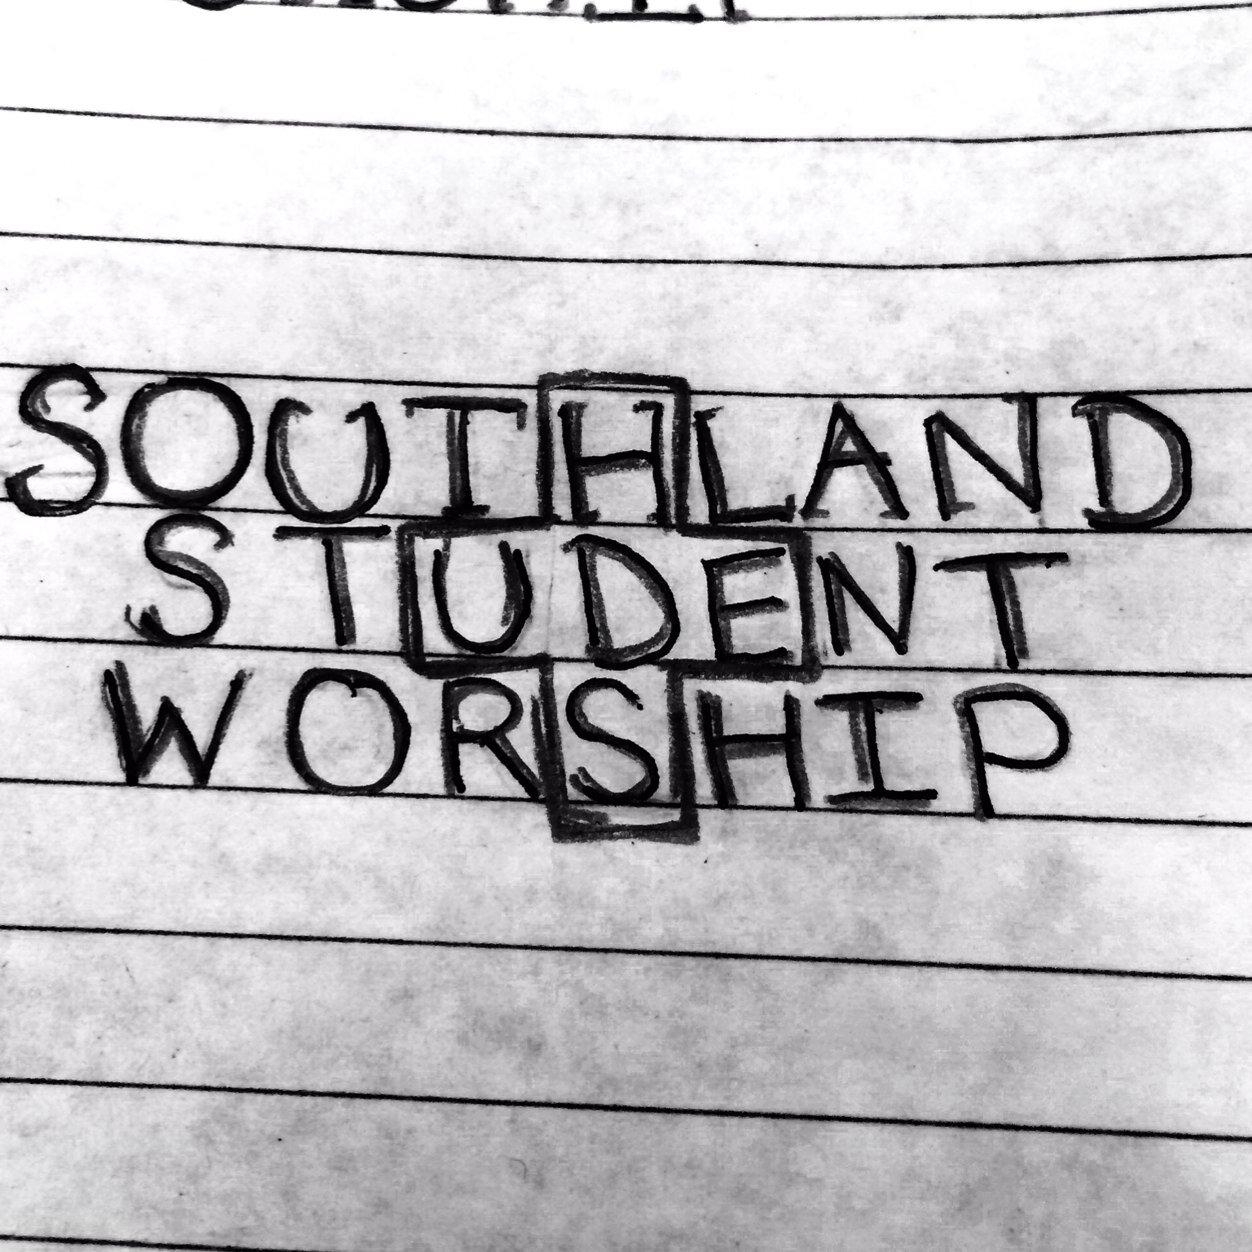 SOUTHLAND
STUDENT
WORSHIP